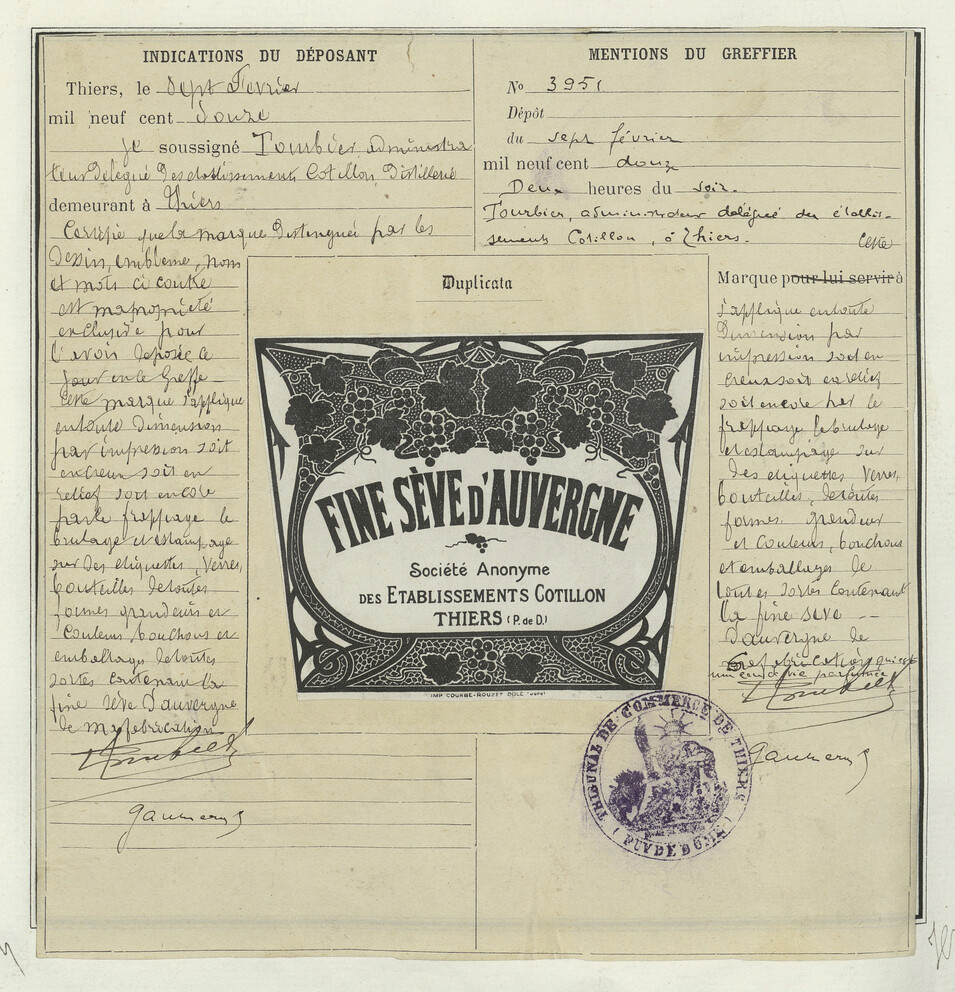 INDICATIONS DU DÉPOSANT
Thiers, le Sept Février
mil neuf cent Douze
Je soussigné Tombier administra
teur Délégué Des établissements Cotillon, Distillerie
demeurant à Thiers
Certifie que la marque Distinguée par les
Dessin, emblème, noms
et mots ci contre
est ma propriété
exclusive pour
l'avoir déposée ce
jour en le Greffe
Cette marque s'applique
en toute Dimension
par impression soit
en creux soit en
relief soit encore
par le frappage le
brulage et estampage
sur des etiquettes, Verres,
bouteilles de toutes
formes grandeurs et
Couleurs bouchons et
emballages de toutes
sortes contenant la
fine sève D'auvergne
de ma fabrication
MENTIONS DU GREFFIER
No 3951
Dépôt
du sept février
mil neuf cent douze
Deux heures du soir.
Tourbier, administrateur délégué des établis-
sements Cotillon, à Thiers. Cette
Marque pour lui servir à
s'applique en toute
Dimension par
impression soit en
creux soit en relief
soit encore par le
frappage le brulage
et estampage sur
des etiquettes, Verres,
bouteilles, de toutes
formes, grandeur
et Couleurs, bouchons
et emballages de
toutes sortes contenant
la fine seve
D'auvergne de
sa fabrication qui est
une eau de vie parfumée
Duplicata
FINE SÈVE D'AUVERGNE
Société Anonyme
DES ETABLISSEMENTS COTILLON
THIERS (P. de D.)
IMP. COURBE-ROUZET DOLE (Jura)
TRIBUNAL DE COMMERCE DE THIERS
(PUY DE DOME)